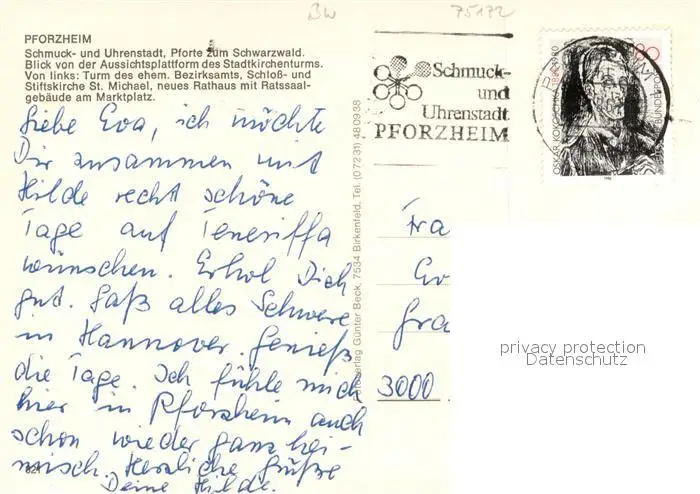 BW
75172
PFORZHEIM
Schmuck- und Uhrenstadt, Pforte zum Schwarzwald.
Blick von der Aussichtsplattform des Stadtkirchenturms.
Von links: Turm des ehem. Bezirksamts, Schloß- und
Stiftskirche St. Michael, neues Rathaus mit Ratssaal-
gebäude am Marktplatz.
Liebe Eva, ich möchte
Dir zusammen mit
Hilde recht schöne
Tage auf Teneriffa
wünschen. Erhol Dich
gut. Laß alles Schwere
in Hannover. Genieß
die Tage. Ich fühle mich
hier in Pforzheim auch
schon wieder ganz hei-
misch. Herzliche Grüße
Deine Hilde.
821
Fotoverlag Günter Beck, 7534 Birkenfeld, Tel. (07231) 480938
Schmuck-
und
Uhrenstadt
PFORZHEIM
80
1980
Fra
Ev
Gra
3000
privacy protection
Datenschutz